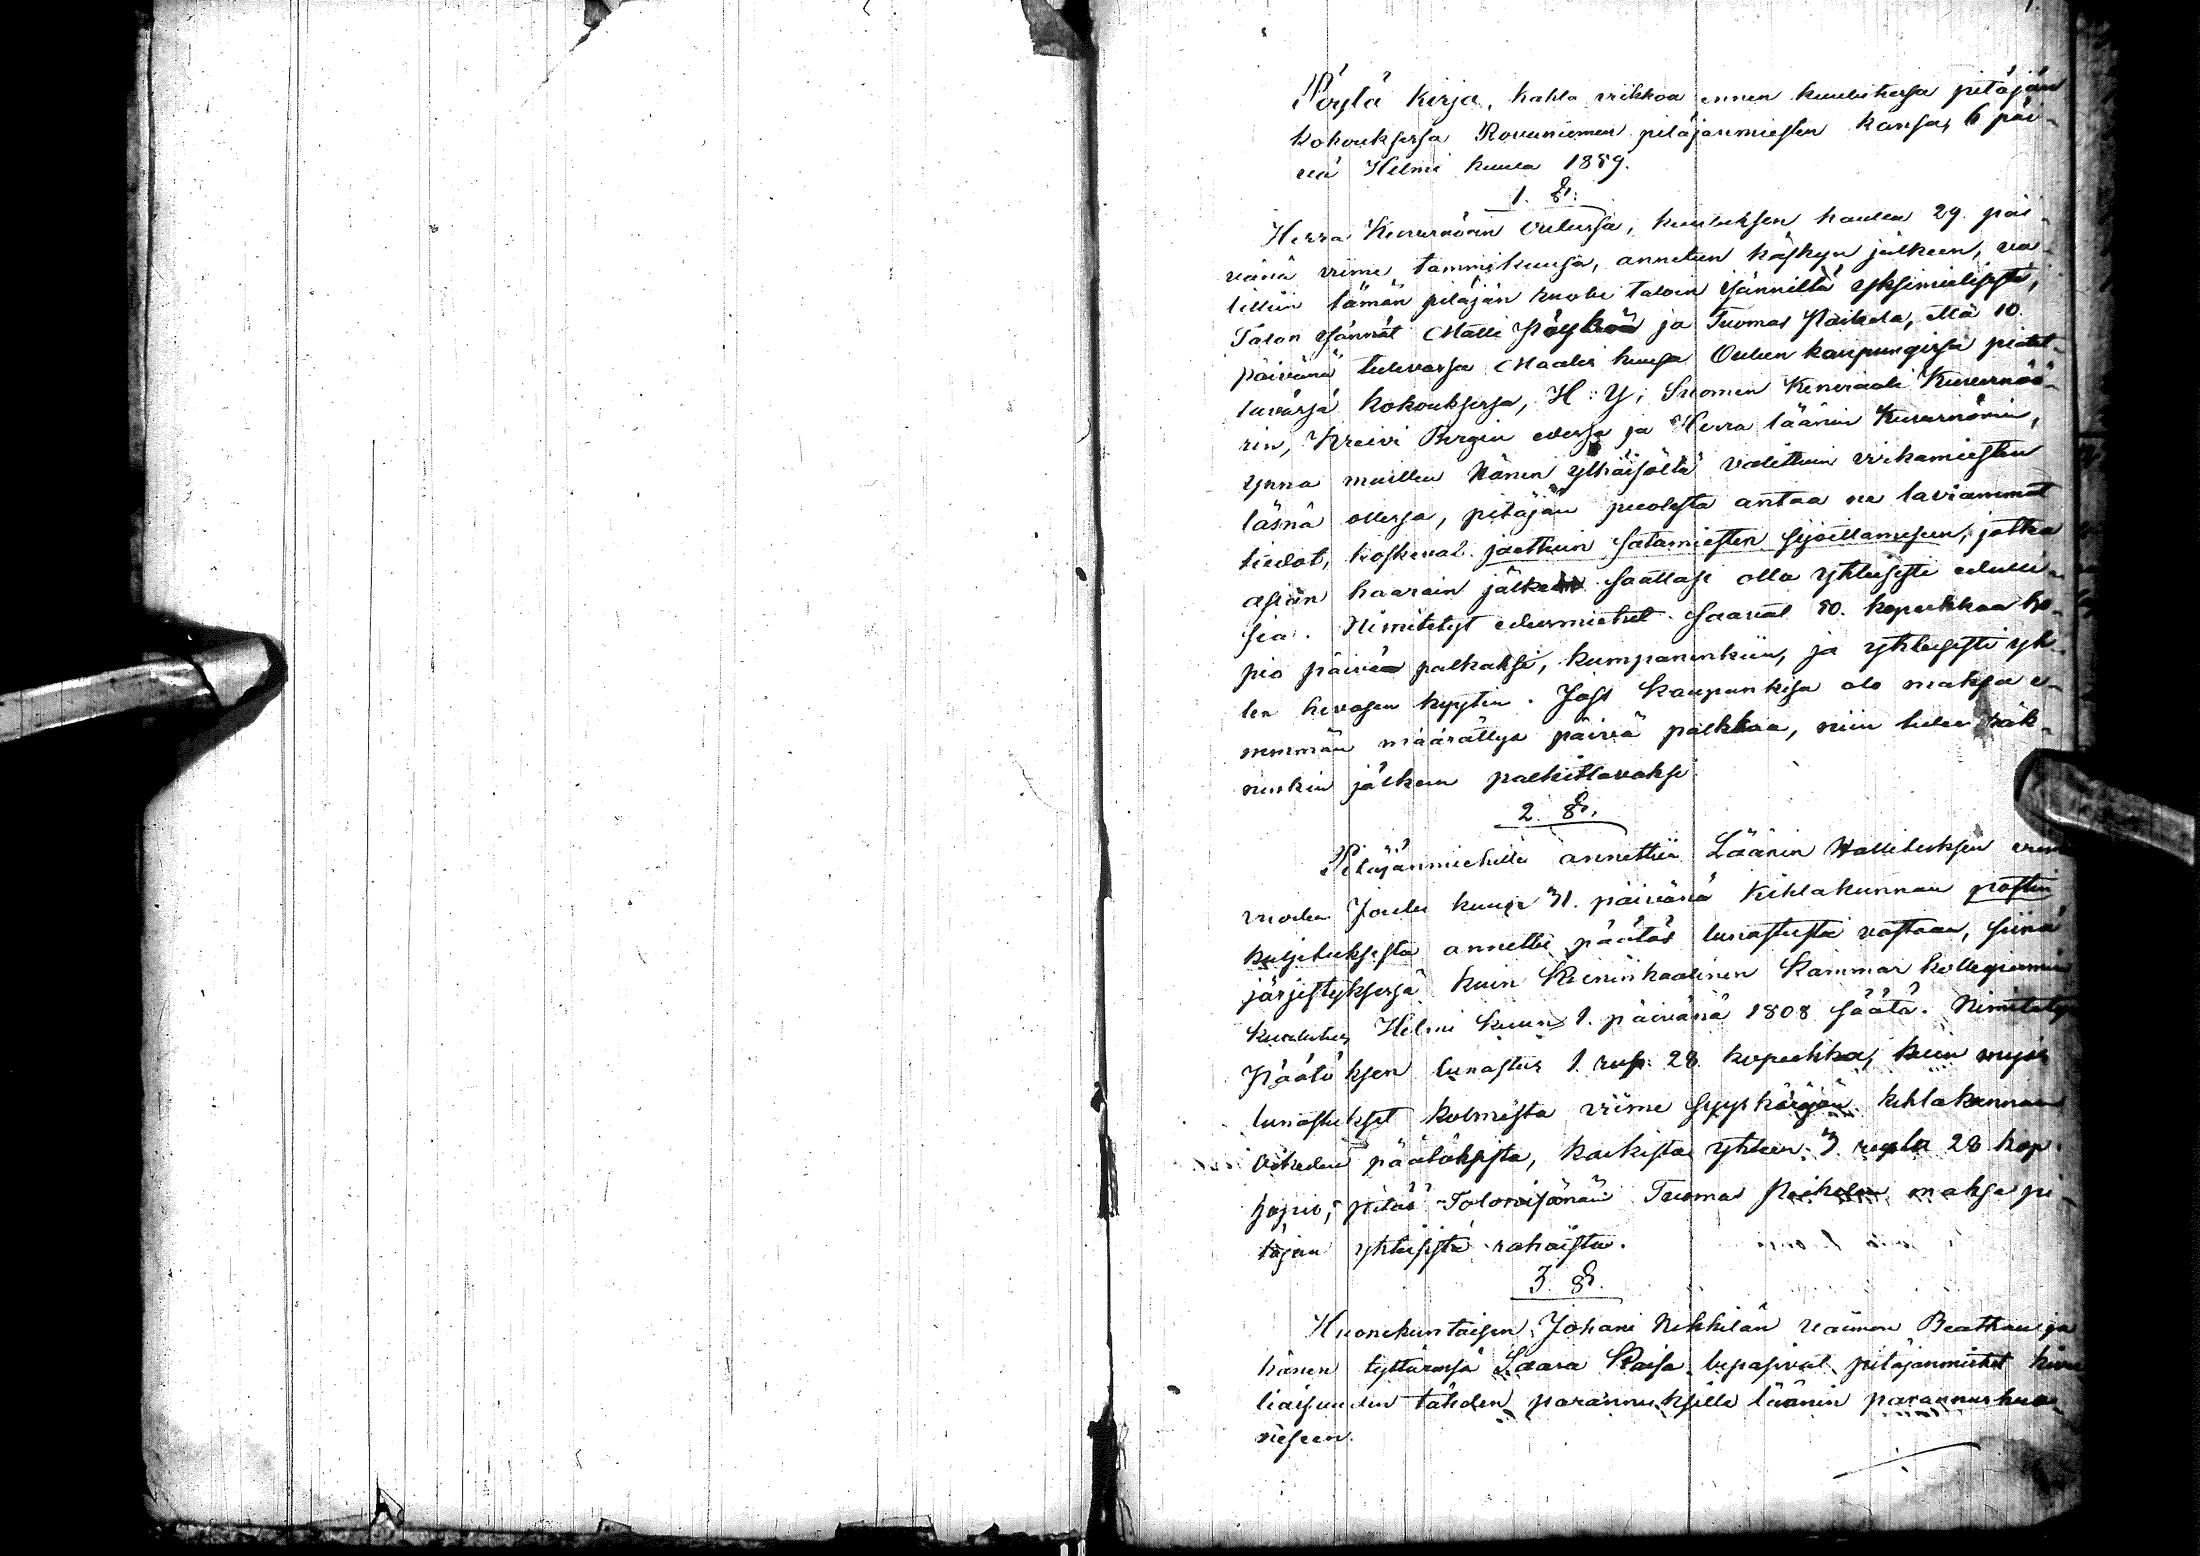 1.
Pöytä Kirja, kahta viikkoa ennen kuulutussa pitäjän
kokouksessa Rovaniemen pitäjänmiesten kansa, 6 päi-
vä Helmi kuuta 1859.
1. §.
Herra Kuvernöörin Oulussa, kuulutuksen kautta 29. päi-
vänä viime tammikuusa, annetun käskyn jälkeen, va-
littiin tämän pitäjän ruobu taloin isänniltä yksimielisesti,
Talon isännät Matti Pöykkö ja Tuomas Paikala, että 10.
päivänä tulevassa Maalis kuusa Oulun kaupungissa pidet-
tävässä kokouksessa, H: Y: Suomen Keneraali Kuvernöö-
rin, Kreivi Bergin edessä ja Herra läänin Kuvernörin,
ynnä muitten Hänen ylhäisöltä valittuin virkamiesten
läsnä ollessa, pitäjän puolesta antaa ne tarviammat
tiedot, koskevat jaettuin satamiesten sijoittamiseen, jotka
asian haarain jälkeen saattasi olla yhteisesti edulli-
sia. Nimitetyt edusmiehet saavat 80. kopeekkaa ho-
pio päivän palkaksi, kumpanenkiin, ja yhteisesti yh-
ten hevosen kyytin. Joss Kaupunkisa olo maksaa e-
nemmän määrättyä päivä palkkaa, niin tulee räk-
ninkin jälkeen palkittavaksi.
2. §.
Pitäjänmiehille annettiin Läänin Hallituksen viime
vuoden Joulu kuusa 31. päivänä Kihlakunnan postin
kuljetuksesta annettu päätös lunastusta vastaan, siinä
järjestyksessä kuin Keisinkaalinen Kammar kollegiumin
kuulutus Helmi kuun 1. päivänä 1808 säätä. Nimitetyn
Päätöksen lunastus 1 rup. 28 kopeekka, kuin myös
lunastukset kolmesta viime syyskäräjän kihlakunnan
Oikeden päätöksistä, kaikista yhteen 3 rupla 28 kop.
hopio, pitää Talonisännän Tuomas Paikalan maksa pi-
täjän yhteisistä rahoista.
3. §.
Huonekuntaisen Johani Nikkilän vaimon Beathan ja
hänen tyttärensä Laara Kaisa lupasivat pitäjänmiehet
liaisuuden tähden parannuksille läänin parannushuo-
neseen.